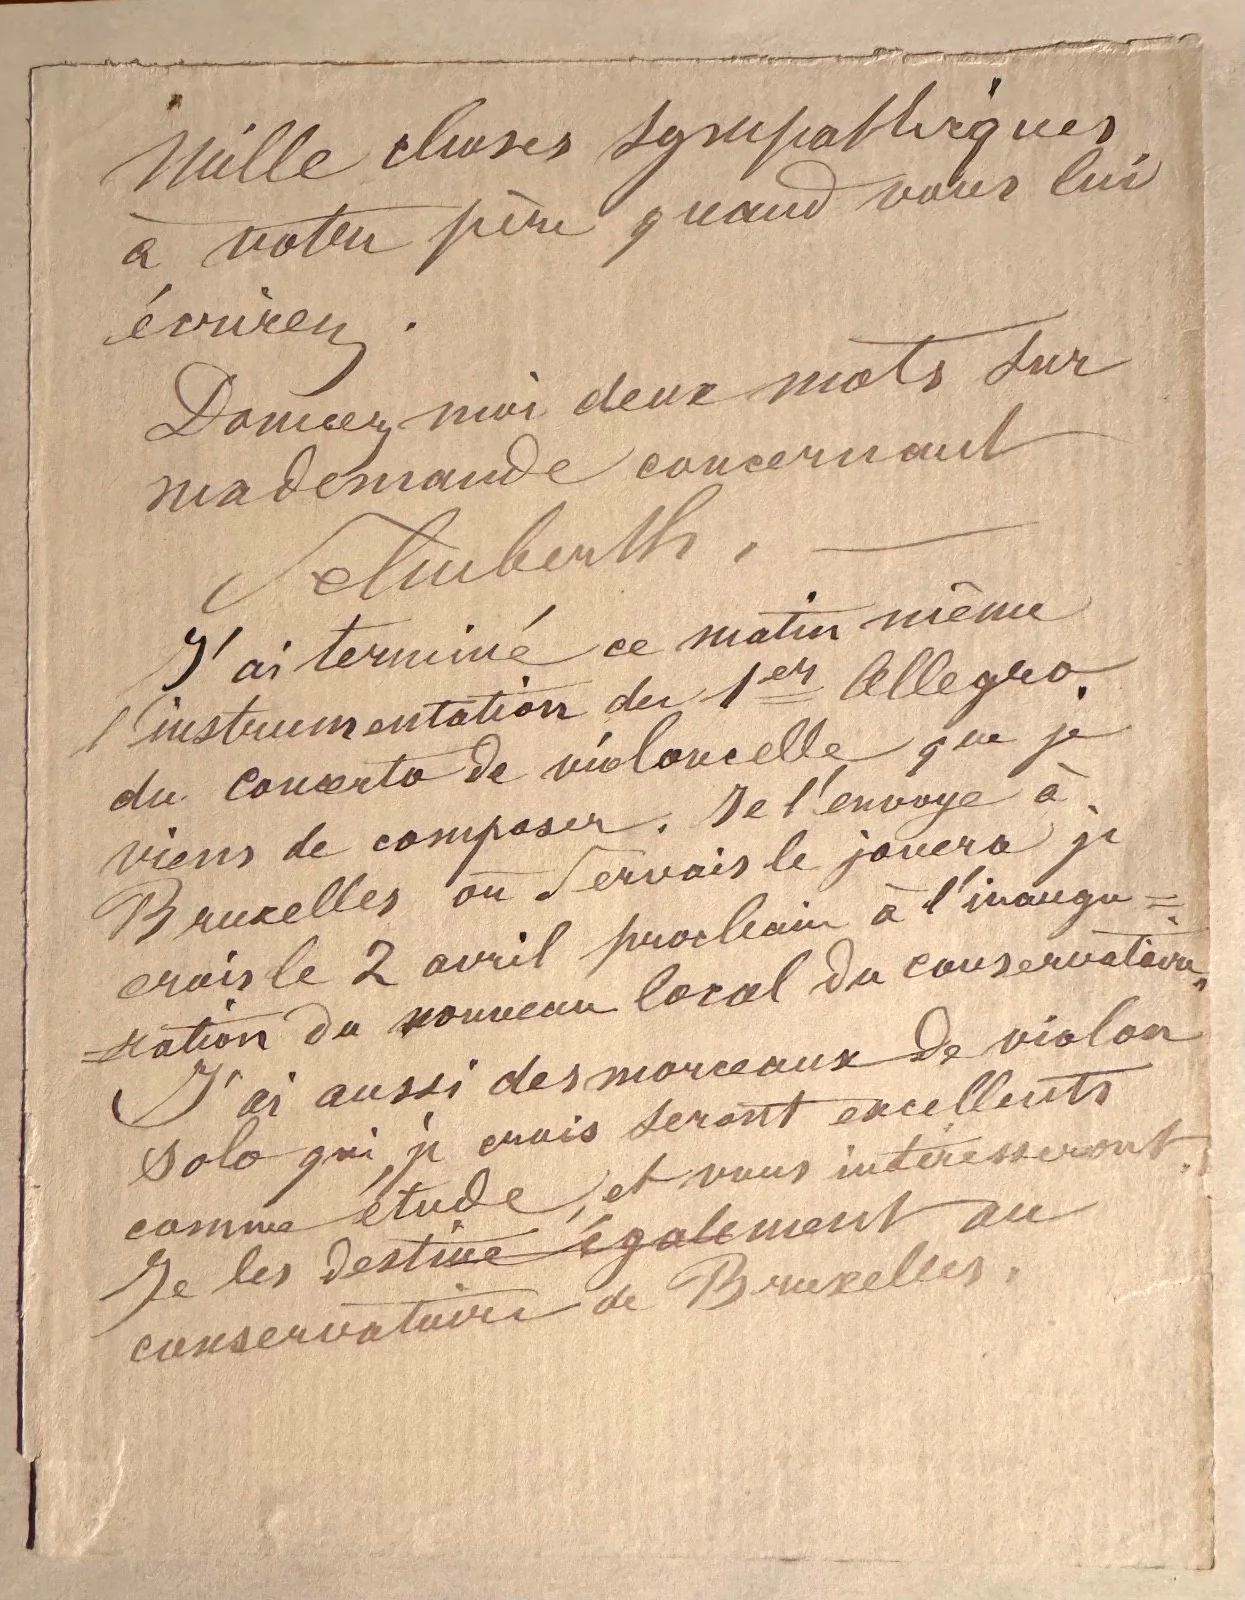 Mille choses sympathiques
à votre père quand vous lui
écrirez.
Donnez moi deux mots sur
ma demande concernant
Schuberth. —
J'ai terminé ce matin même
l'instrumentation du 1er Allegro
du Concerto de violoncelle que je
viens de composer. Je l'envoye à
Bruxelles où Servais le jouera je
crois le 2 avril prochain à l'inaugu=
=ration du nouveau local du conservatoire,
J'ai aussi des morceaux de violon
Solo qui, je crois seront excellents
comme étude, et vous intéresseront.
Je les destine également au
conservatoire de Bruxelles.